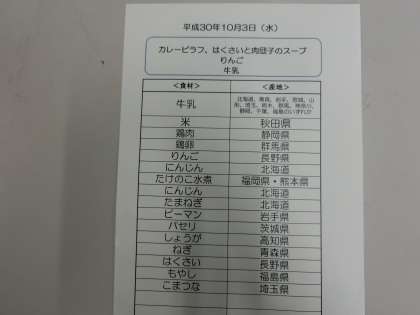 平成30年10月3日（水）
カレーピラフ、はくさいと肉団子のスープ
りんご
牛乳
＜食材＞ ＜産地＞
牛乳 北海道、青森、岩手、宮城、山形、埼玉、栃木、群馬、神奈川、静岡、千葉、福島のいずれか
米 秋田県
鶏肉 静岡県
鶏卵 群馬県
りんご 長野県
にんじん 北海道
たけのこ水煮 福岡県・熊本県
にんじん 北海道
たまねぎ 北海道
ピーマン 岩手県
パセリ 茨城県
しょうが 高知県
ねぎ 青森県
はくさい 長野県
もやし 福島県
こまつな 埼玉県